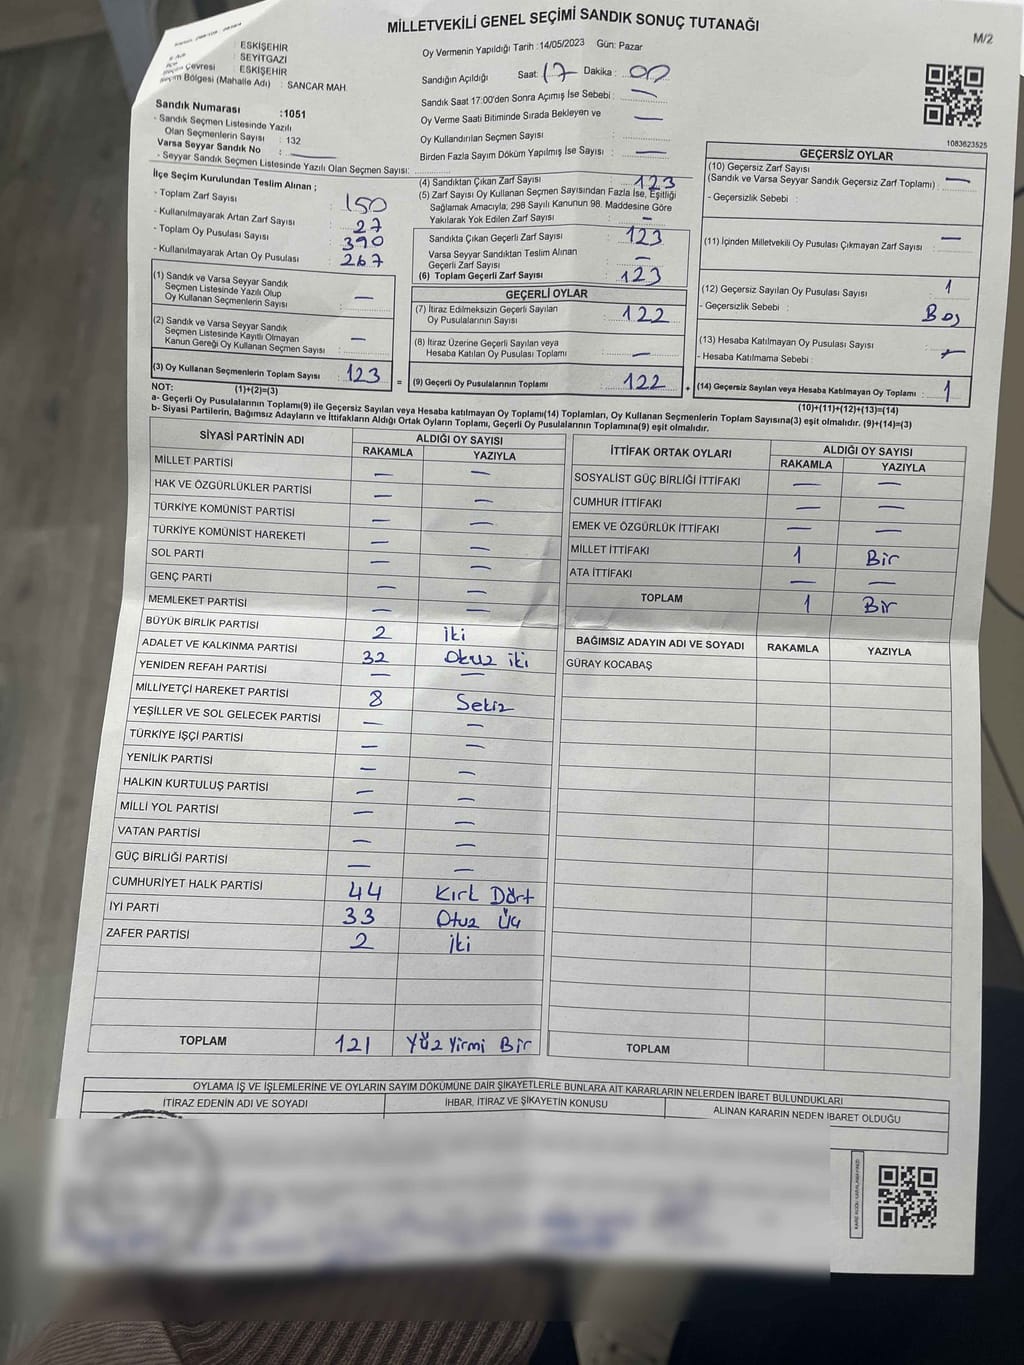 MİLLETVEKİLİ GENEL SEÇİMİ SANDIK SONUÇ TUTANAĞI
M/2
ESKİŞEHİR
SEYİTGAZİ
Seçim Çevresi ESKİŞEHİR
Seçim Bölgesi (Mahalle Adı) : SANCAR MAH.
Oy Vermenin Yapıldığı Tarih :14/05/2023 Gün: Pazar
Sandığın Açıldığı Saat: 17 Dakika : 00
Sandık Saat 17:00'den Sonra Açımış İse Sebebi : —
Oy Verme Saati Bitiminde Sırada Bekleyen ve
Oy Kullandırılan Seçmen Sayısı —
Birden Fazla Sayım Döküm Yapılmış İse Sayısı : —
Sandık Numarası :1051
- Sandık Seçmen Listesinde Yazılı
Olan Seçmenlerin Sayısı : 132
Varsa Seyyar Sandık No : —
- Seyyar Sandık Seçmen Listesinde Yazılı Olan Seçmen Sayısı:
1083623525
İlçe Seçim Kurulundan Teslim Alınan ;
- Toplam Zarf Sayısı 150
- Kullanılmayarak Artan Zarf Sayısı 27
- Toplam Oy Pusulası Sayısı 390
- Kullanılmayarak Artan Oy Pusulası 267
(1) Sandık ve Varsa Seyyar Sandık
Seçmen Listesinde Yazılı Olup
Oy Kullanan Seçmenlerin Sayısı —
(2) Sandık ve Varsa Seyyar Sandık
Seçmen Listesinde Kayıtlı Olmayan
Kanun Gereği Oy Kullanan Seçmen Sayısı —
(3) Oy Kullanan Seçmenlerin Toplam Sayısı 123
(4) Sandıktan Çıkan Zarf Sayısı 123
(5) Zarf Sayısı Oy Kullanan Seçmen Sayısından Fazla İse, Eşitliği
Sağlamak Amacıyla; 298 Sayılı Kanunun 98. Maddesine Göre
Yakılarak Yok Edilen Zarf Sayısı —
Sandıkta Çıkan Geçerli Zarf Sayısı 123
Varsa Seyyar Sandıktan Teslim Alınan
Geçerli Zarf Sayısı —
(6) Toplam Geçerli Zarf Sayısı 123
GEÇERLİ OYLAR
(7) İtiraz Edilmeksizin Geçerli Sayılan
Oy Pusulalarının Sayısı 122
(8) İtiraz Üzerine Geçerli Sayılan veya
Hesaba Katılan Oy Pusulası Toplamı —
= (9) Geçerli Oy Pusulalarının Toplamı 122
GEÇERSİZ OYLAR
(10) Geçersiz Zarf Sayısı
(Sandık ve Varsa Seyyar Sandık Geçersiz Zarf Toplamı) : —
- Geçersizlik Sebebi :
(11) İçinden Milletvekili Oy Pusulası Çıkmayan Zarf Sayısı —
(12) Geçersiz Sayılan Oy Pusulası Sayısı 1
- Geçersizlik Sebebi : Boş
(13) Hesaba Katılmayan Oy Pusulası Sayısı
- Hesaba Katılmama Sebebi :
+ (14) Geçersiz Sayılan veya Hesaba Katılmayan Oy Toplamı 1
NOT: (1)+(2)=(3) (10)+(11)+(12)+(13)=(14)
a- Geçerli Oy Pusulalarının Toplamı(9) ile Geçersiz Sayılan veya Hesaba katılmayan Oy Toplamı(14) Toplamları, Oy Kullanan Seçmenlerin Toplam Sayısına(3) eşit olmalıdır. (9)+(14)=(3)
b- Siyasi Partilerin, Bağımsız Adayların ve İttifakların Aldığı Ortak Oyların Toplamı, Geçerli Oy Pusulalarının Toplamına(9) eşit olmalıdır.
SİYASİ PARTİNİN ADI ALDIĞI OY SAYISI
RAKAMLA YAZIYLA
MİLLET PARTİSİ — —
HAK VE ÖZGÜRLÜKLER PARTİSİ — —
TÜRKİYE KOMÜNİST PARTİSİ — —
TÜRKİYE KOMÜNİST HAREKETİ — —
SOL PARTİ — —
GENÇ PARTİ — —
MEMLEKET PARTİSİ — —
BÜYÜK BİRLİK PARTİSİ 2 iki
ADALET VE KALKINMA PARTİSİ 32 Otuz iki
YENİDEN REFAH PARTİSİ — —
MİLLİYETÇİ HAREKET PARTİSİ 8 Sekiz
YEŞİLLER VE SOL GELECEK PARTİSİ — —
TÜRKİYE İŞÇİ PARTİSİ — —
YENİLİK PARTİSİ — —
HALKIN KURTULUŞ PARTİSİ — —
MİLLİ YOL PARTİSİ — —
VATAN PARTİSİ — —
GÜÇ BİRLİĞİ PARTİSİ — —
CUMHURİYET HALK PARTİSİ 44 Kırk Dört
İYİ PARTİ 33 Otuz Üç
ZAFER PARTİSİ 2 iki
TOPLAM 121 Yüz Yirmi Bir
İTTİFAK ORTAK OYLARI ALDIĞI OY SAYISI
RAKAMLA YAZIYLA
SOSYALİST GÜÇ BİRLİĞİ İTTİFAKI — —
CUMHUR İTTİFAKI — —
EMEK VE ÖZGÜRLÜK İTTİFAKI — —
MİLLET İTTİFAKI 1 Bir
ATA İTTİFAKI — —
TOPLAM 1 Bir
BAĞIMSIZ ADAYIN ADI VE SOYADI RAKAMLA YAZIYLA
GÜRAY KOCABAŞ
TOPLAM
OYLAMA İŞ VE İŞLEMLERİNE VE OYLARIN SAYIM DÖKÜMÜNE DAİR ŞİKAYETLERLE BUNLARA AİT KARARLARIN NELERDEN İBARET BULUNDUKLARI
İTİRAZ EDENİN ADI VE SOYADI İHBAR, İTİRAZ VE ŞİKAYETİN KONUSU ALINAN KARARIN NEDEN İBARET OLDUĞU